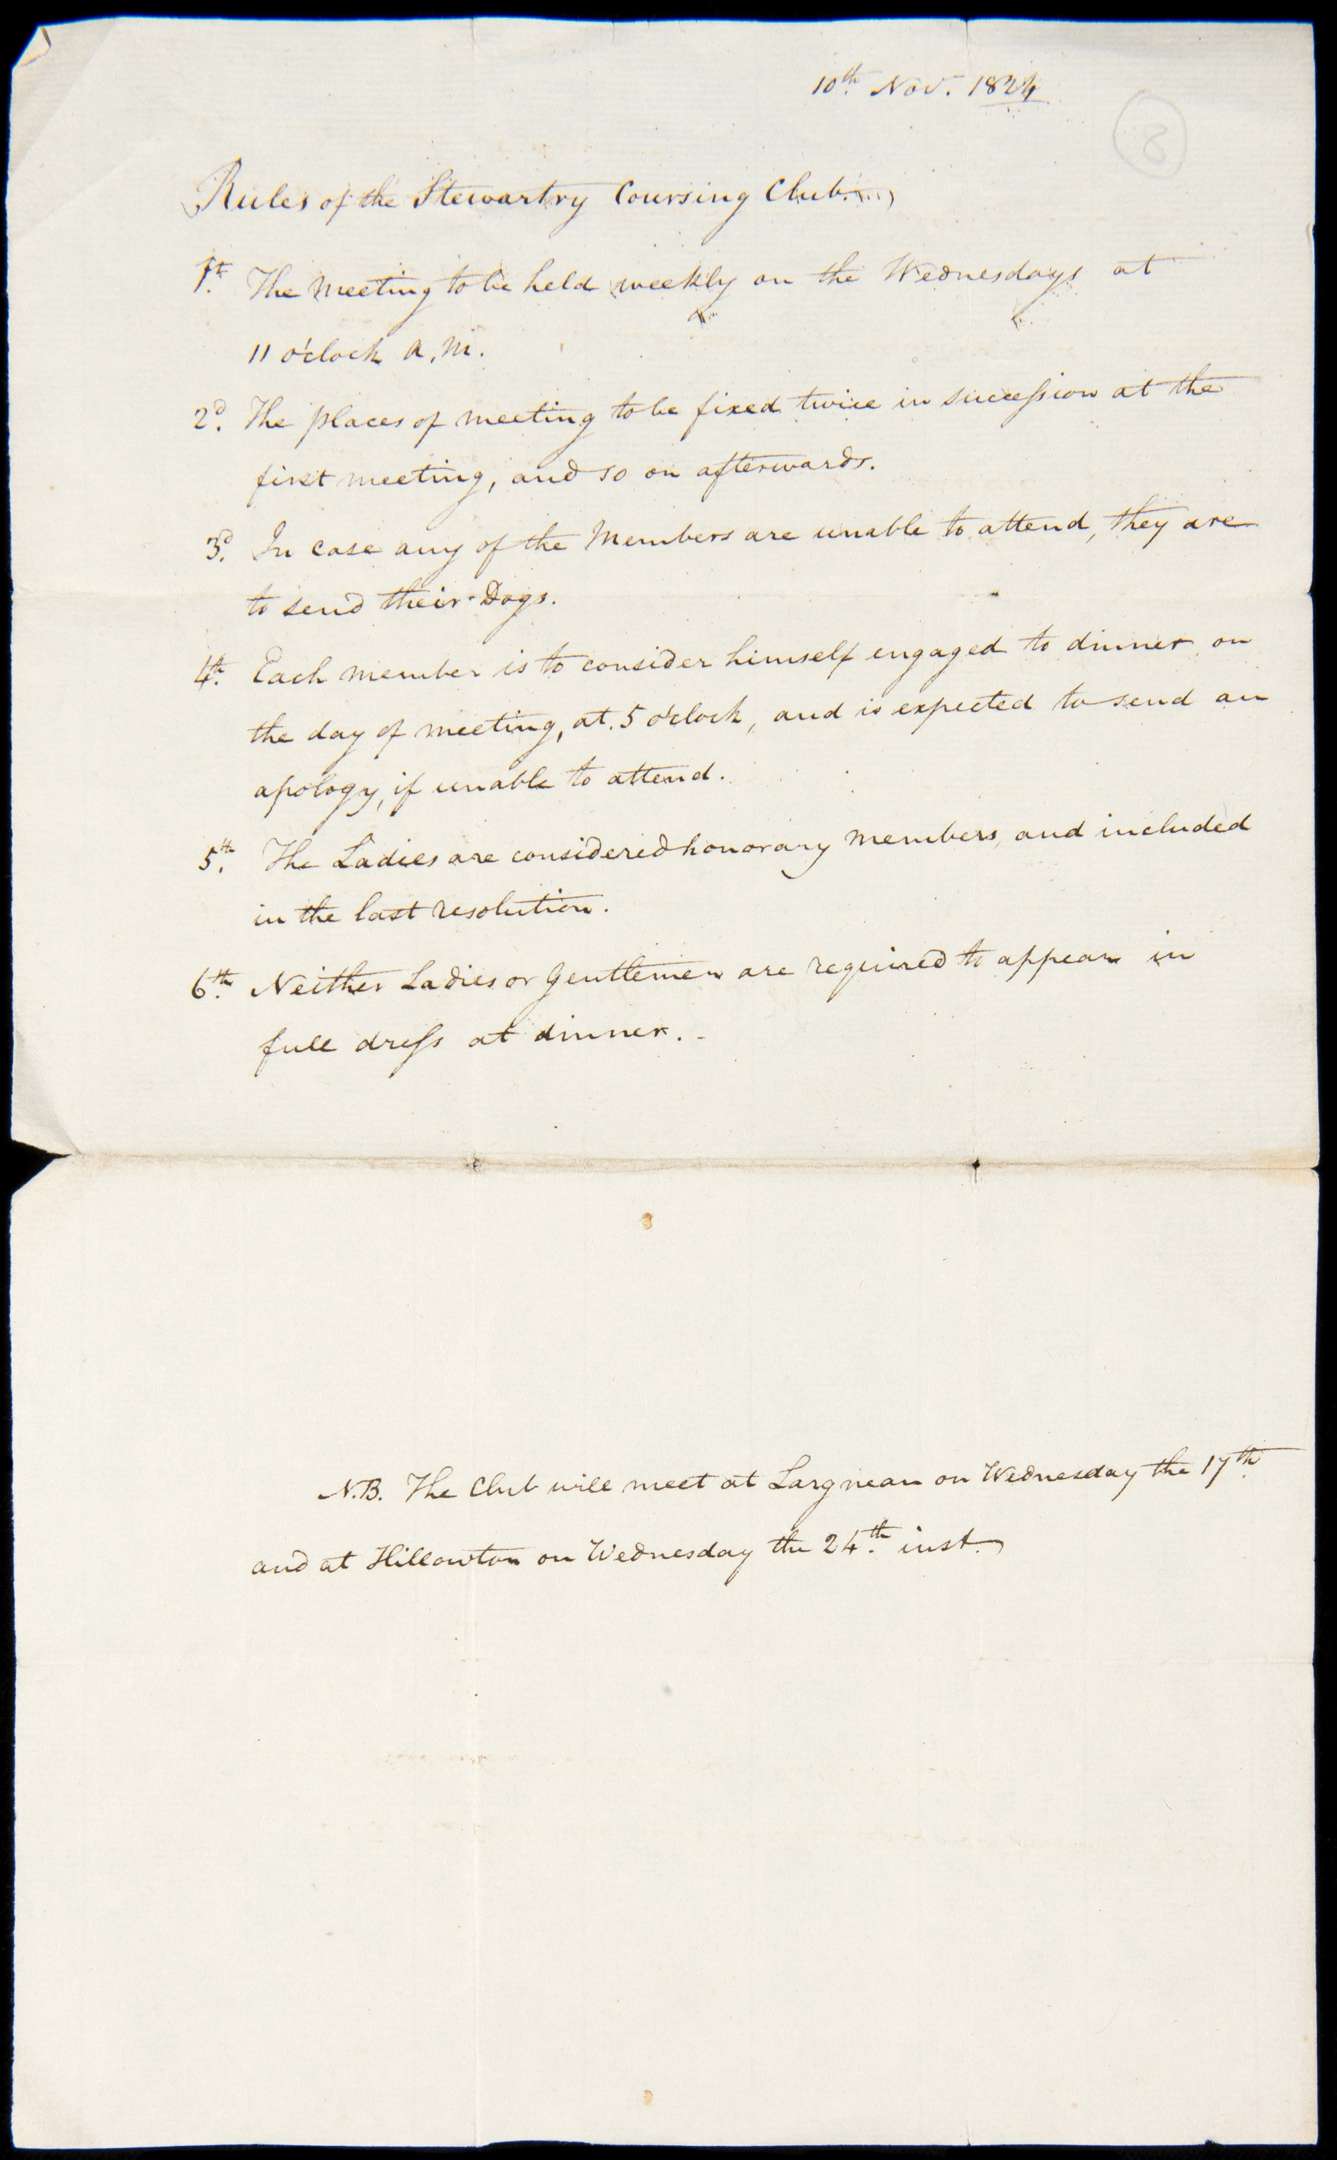 10th. Nov. 1824
8
Rules of the Stewartry Coursing Club.
1st. The Meeting to be held weekly on the Wednesdays at
11 o'clock A.M.
2d. The places of meeting to be fixed twice in succeſsion at the
first meeting, and so on afterwards.
3d. In case any of the Members are unable to attend, they are
to send their Dogs.
4th. Each member is to consider himself engaged to dinner on
the day of meeting, at 5 o'clock, and is expected to send an
apology, if unable to attend.
5th. The Ladies are considered honorary members, and included
in the last resolution.
6th. Neither Ladies or Gentlemen are required to appear in
full dreſs at dinner. -
N.B. The Club will meet at Largnean on Wednesday the 17th.
and at Hillowton on Wednesday the 24th. inst.